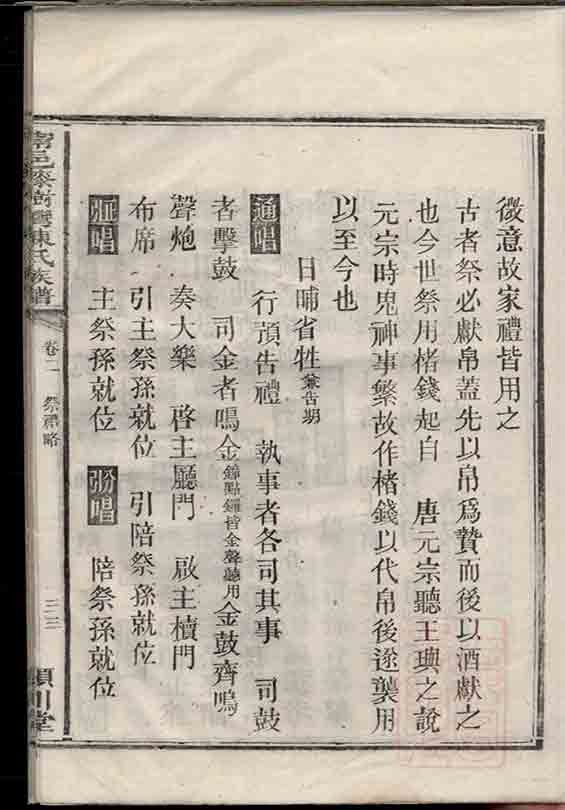 微意故家禮皆用之
古者祭必獻帛蓋先以帛爲贄而後以酒獻之
也今世祭用楮錢起自　唐元宗聽王璵之說
元宗時鬼神事繁故作楮錢以代帛後遂襲用
以至今也
日晡省牲兼告期
通唱　行預告禮　執事者各司其事　司鼓
者擊鼓　司金者鳴金錦點鑼皆金聲聽用金鼓齊鳴
聲炮　奏大樂　啓主廳門　啟主櫝門
布席　引主祭孫就位　引陪祭孫就位
　主祭孫就位　　陪祭孫就位
陳氏族譜
卷二　祭禮略
三三
潁川堂